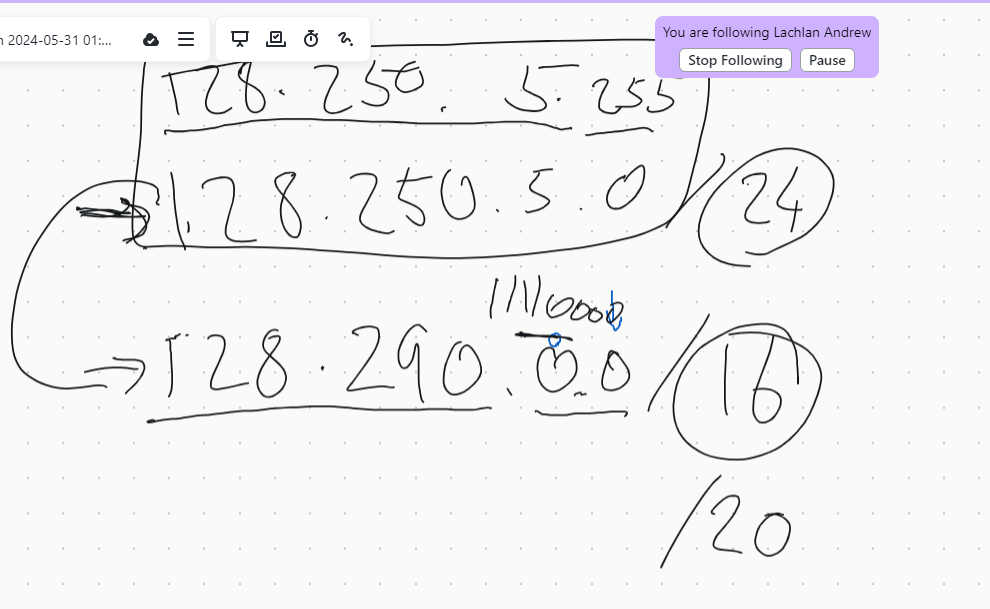 n 2024-05-31 01:...
You are following Lachlan Andrew
Stop Following Pause
128.250.5.255
128.250.5.0/24
11110000
128.290.0.0/16
/20